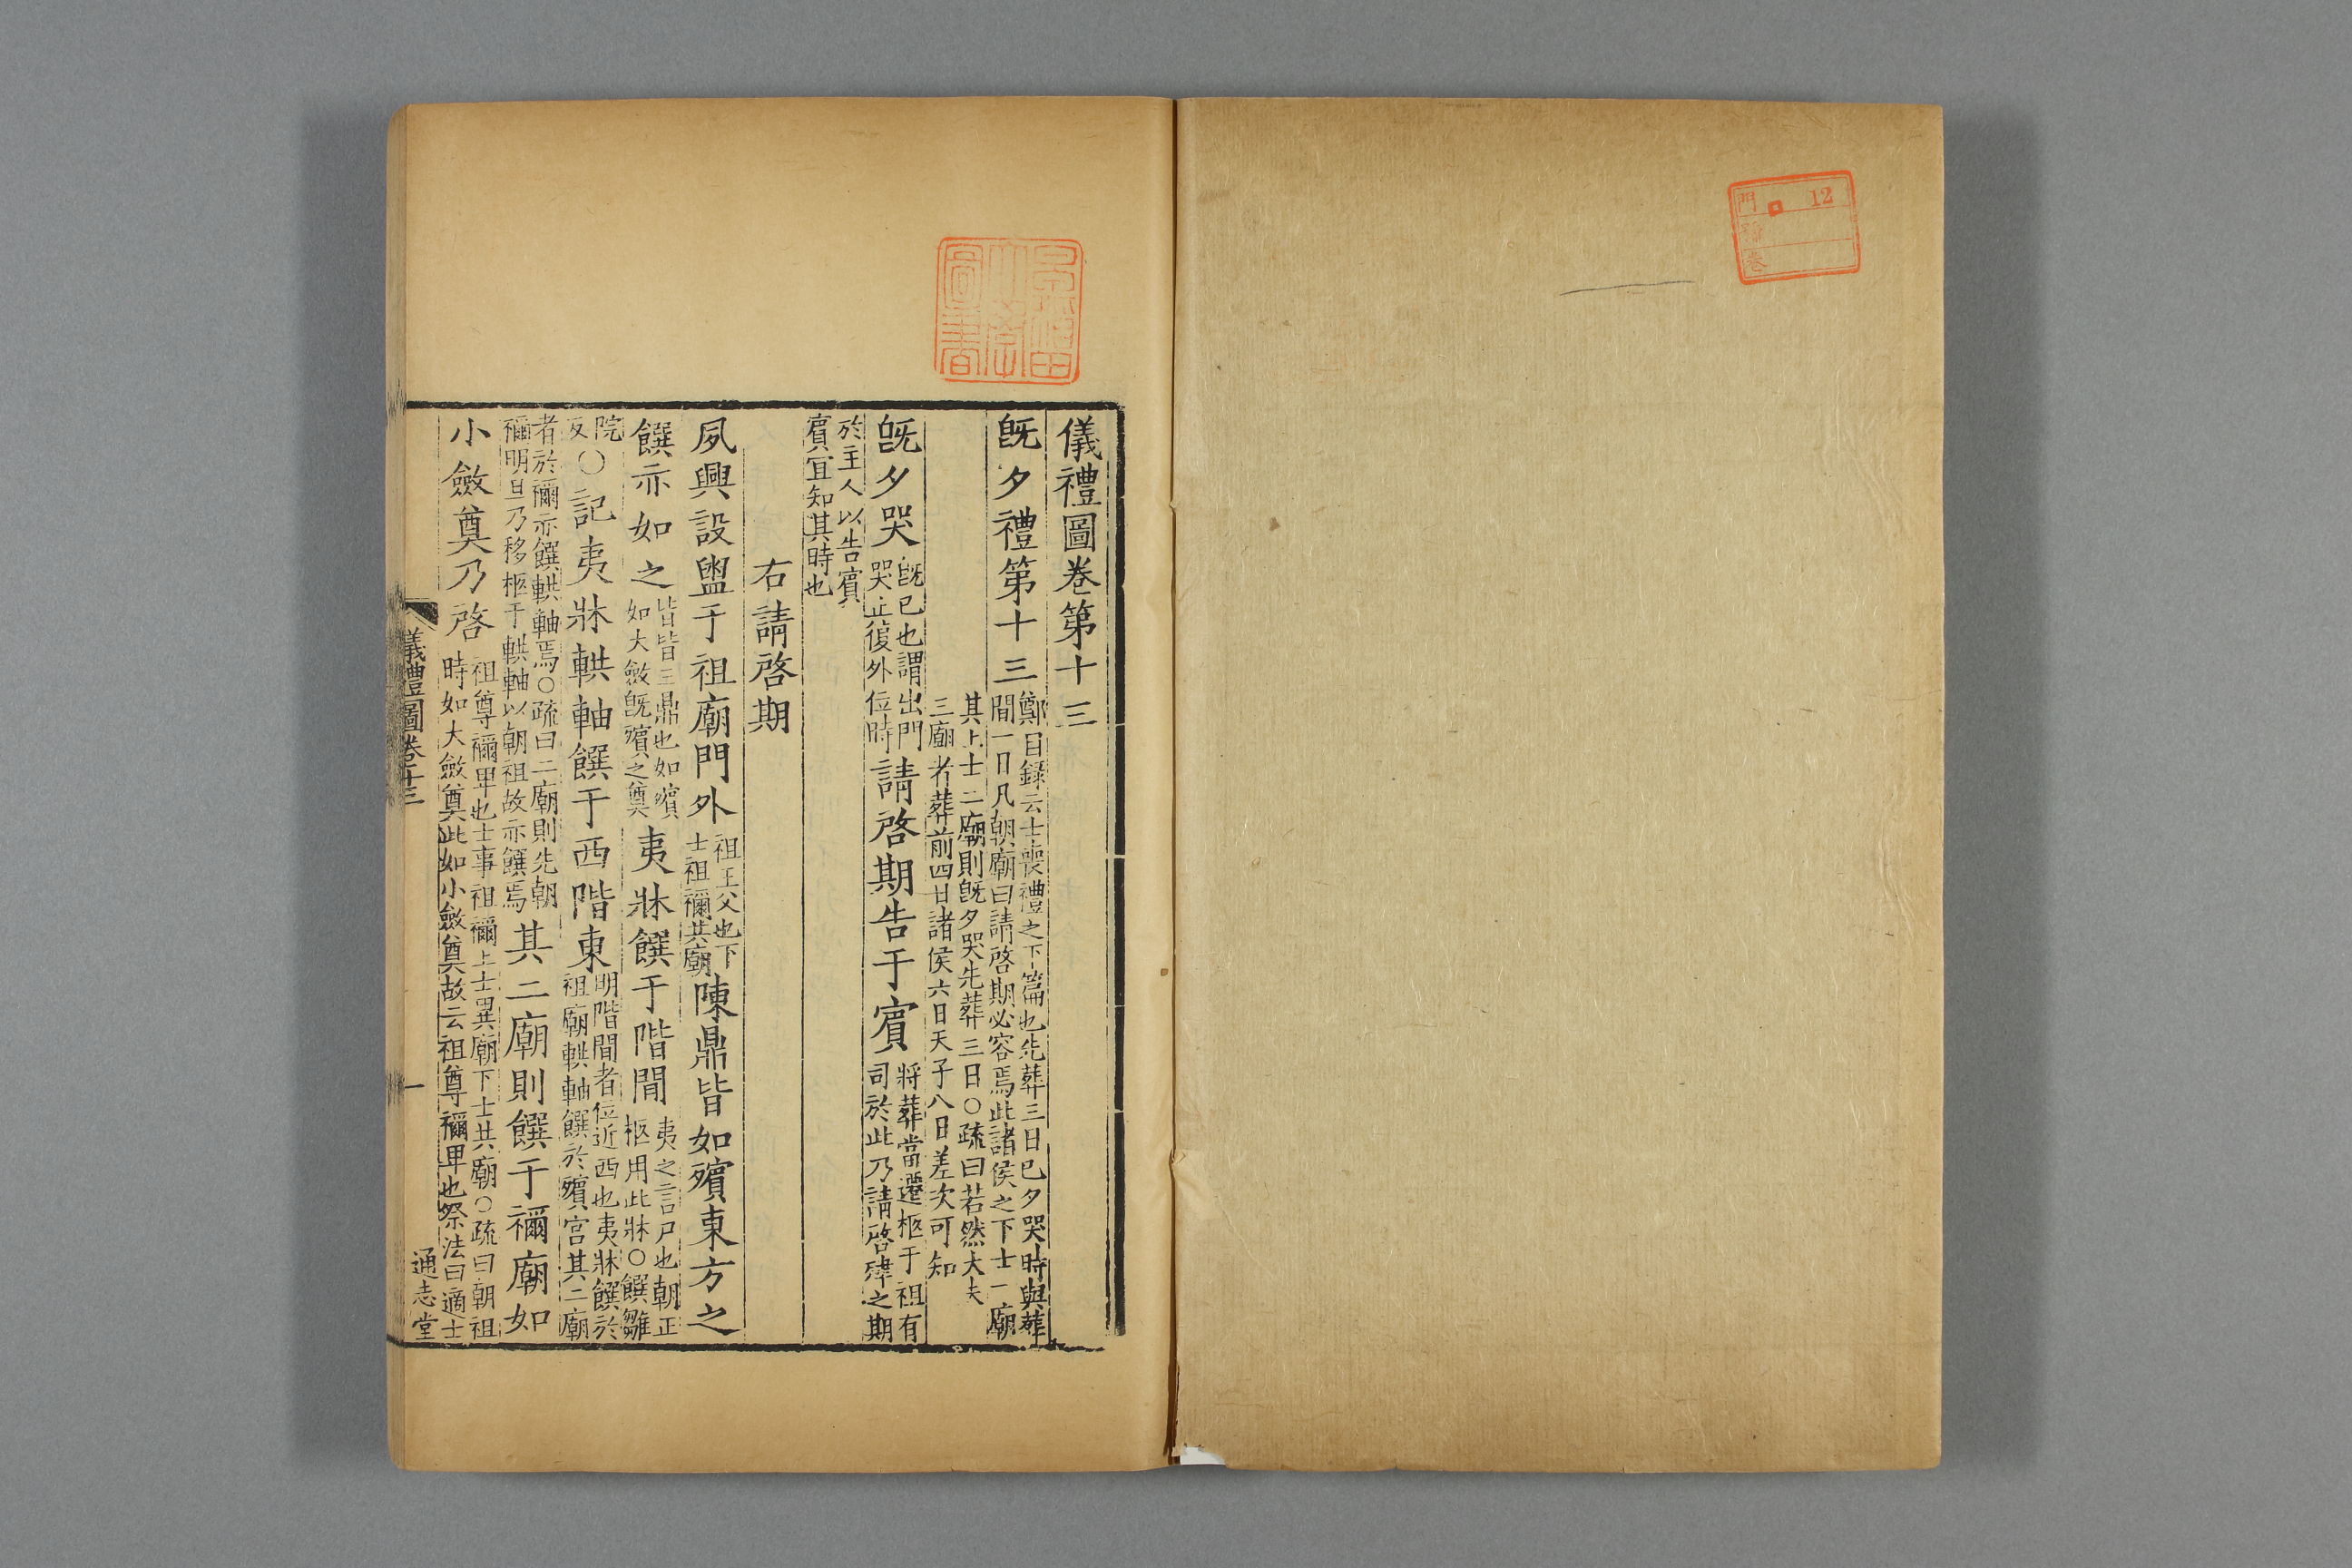 門 12
號
卷
儀禮圖卷第十三
旣夕禮第十三
鄭目錄云士喪禮之下篇也先葬三日巳夕哭時與葬
間一日凡朝廟曰請啓期必容焉此諸侯之下士一廟
其上士二廟則旣夕哭先葬三日○疏曰若然大夫
三廟者葬前四廿諸侯六日天子八日差次可知
旣夕哭
旣巳也謂出門
哭止復外位時
請啓期告于賓
將葬當遷柩于祖有
司於此乃請啓肂之期
於主人以告賓
賓宜知其時也
右請啓期
夙興設盥于祖廟門外
祖王父也下
士祖禰共廟
陳鼎皆如殯東方之
饌亦如之
皆皆三鼎也如殯
如大斂旣殯之奠
夷牀饌于階間
夷之言尸也朝正
柩用此牀○饌雛
院
反
○記夷牀輁軸饌于西階東
明階間者位近西也夷牀饌於
祖廟輁軸饌於殯宮其二廟
者於禰亦饌輁軸焉○疏曰二廟則先朝
禰明旦乃移柩于輁軸以朝祖故亦饌焉
其二廟則饌于禰廟如
小斂奠乃啓
祖尊禰卑也士事祖禰上士異廟下士共廟○疏曰朝祖
時如大斂奠此如小斂奠故云祖尊禰卑也祭法曰適士
儀禮圖卷十三
一
通志堂